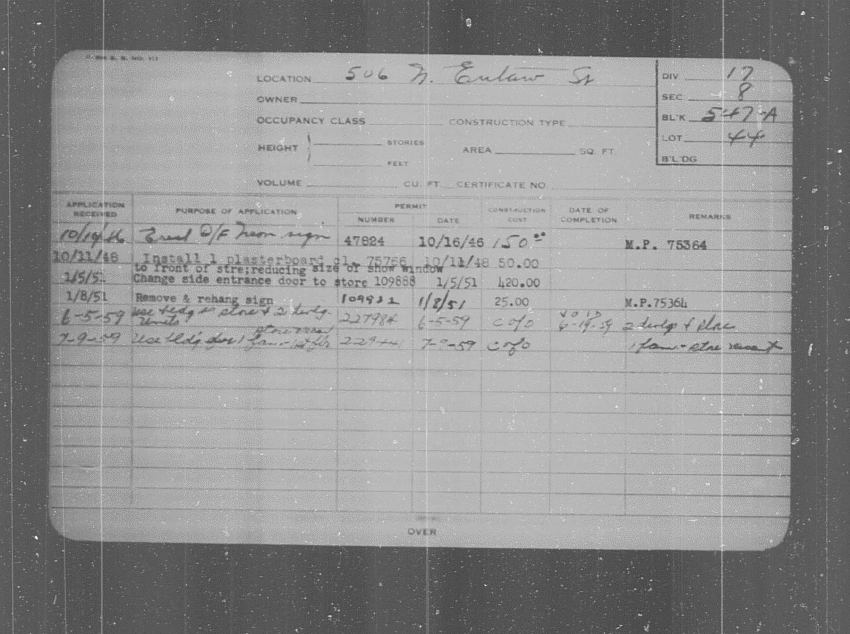 LOCATION 506 N. Eutaw St
DIV 17
SEC 8
OWNER
BL'K 547-A
OCCUPANCY CLASS CONSTRUCTION TYPE
LOT 44
HEIGHT STORIES AREA SQ. FT.
FEET
B'L'DG
VOLUME CU. FT. CERTIFICATE NO.
APPLICATION RECEIVED PURPOSE OF APPLICATION PERMIT NUMBER DATE CONSTRUCTION COST DATE OF COMPLETION REMARKS
Erect D/F Neon sign 47824 10/16/46 150.00 M.P. 75364
10/11/48 Install 1 plasterboard 75766 10/11/48 50.00
to front of stre;reducing size of show window
1/5/51 Change side entrance door to store 109888 1/5/51 420.00
1/8/51 Remove & rehang sign 1/8/51 25.00 M.P.75364
6-5-59 Use bldg as store & 2 dwlg. 227984 6-5-59 C of O VOID 6-19-59 2 dwlg & store
units
store vacant
7-9-59 Use bldg for 1 fam. 7-9-59 C of O 1 fam - store vacant
OVER